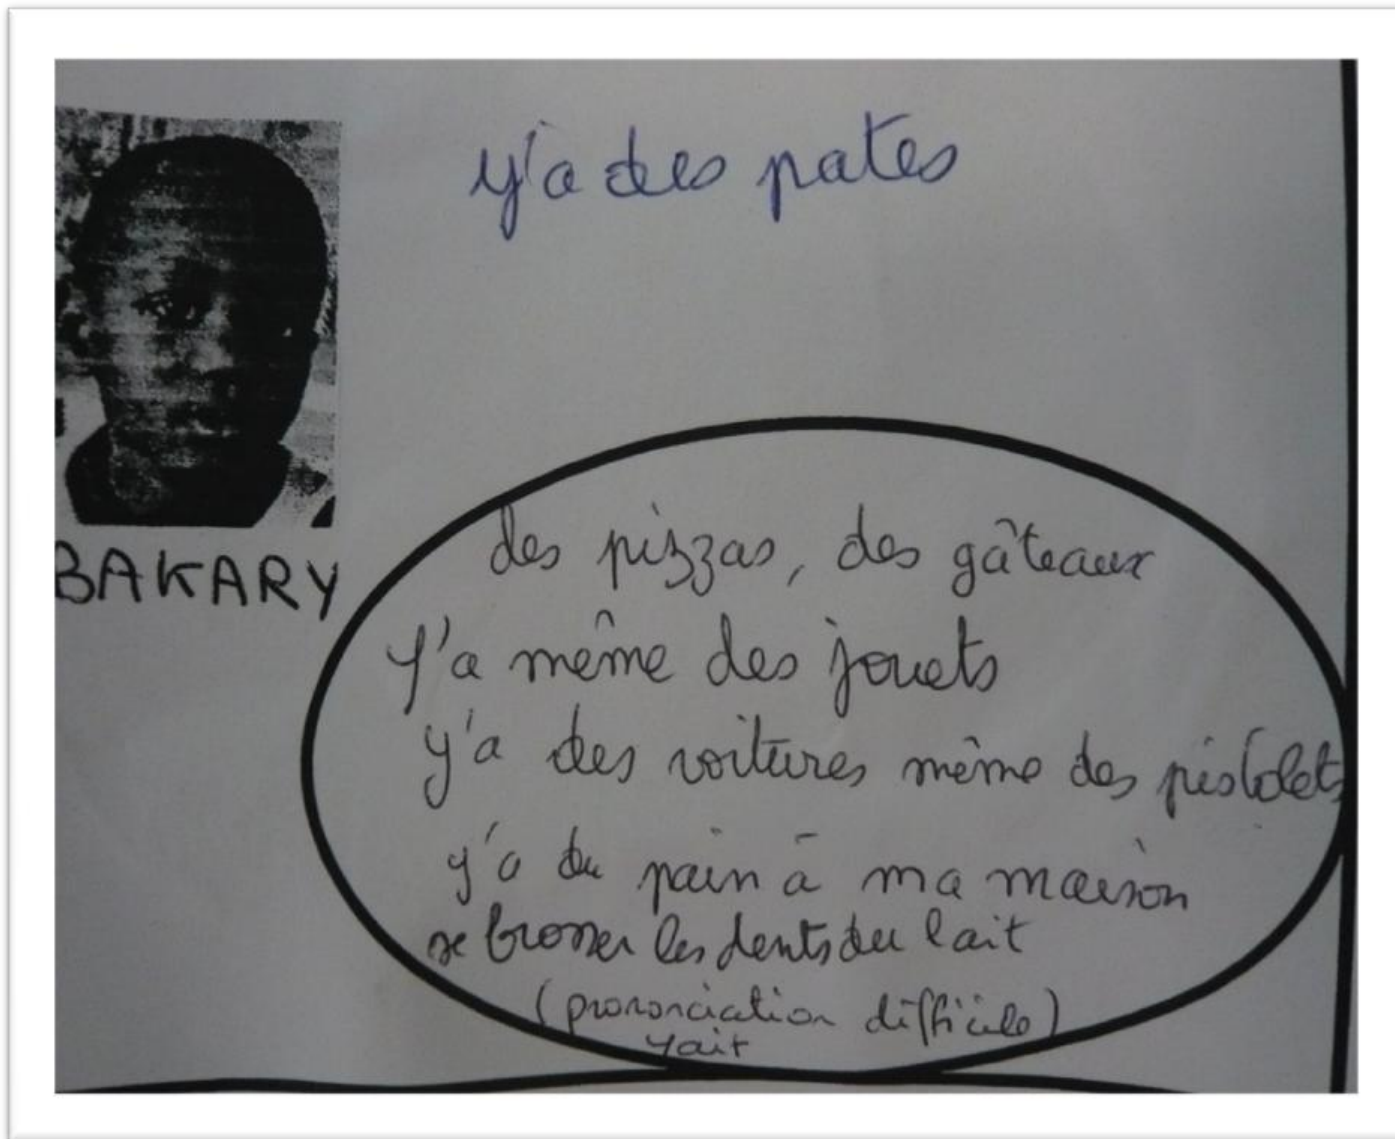 y'a des pates
BAKARY
des pizzas, des gâteaux
Y'a même des jouets
y'a des voitures même des pistolets
y'a du pain à ma maison
se brosser les dents du lait
(prononciation difficile)
yait